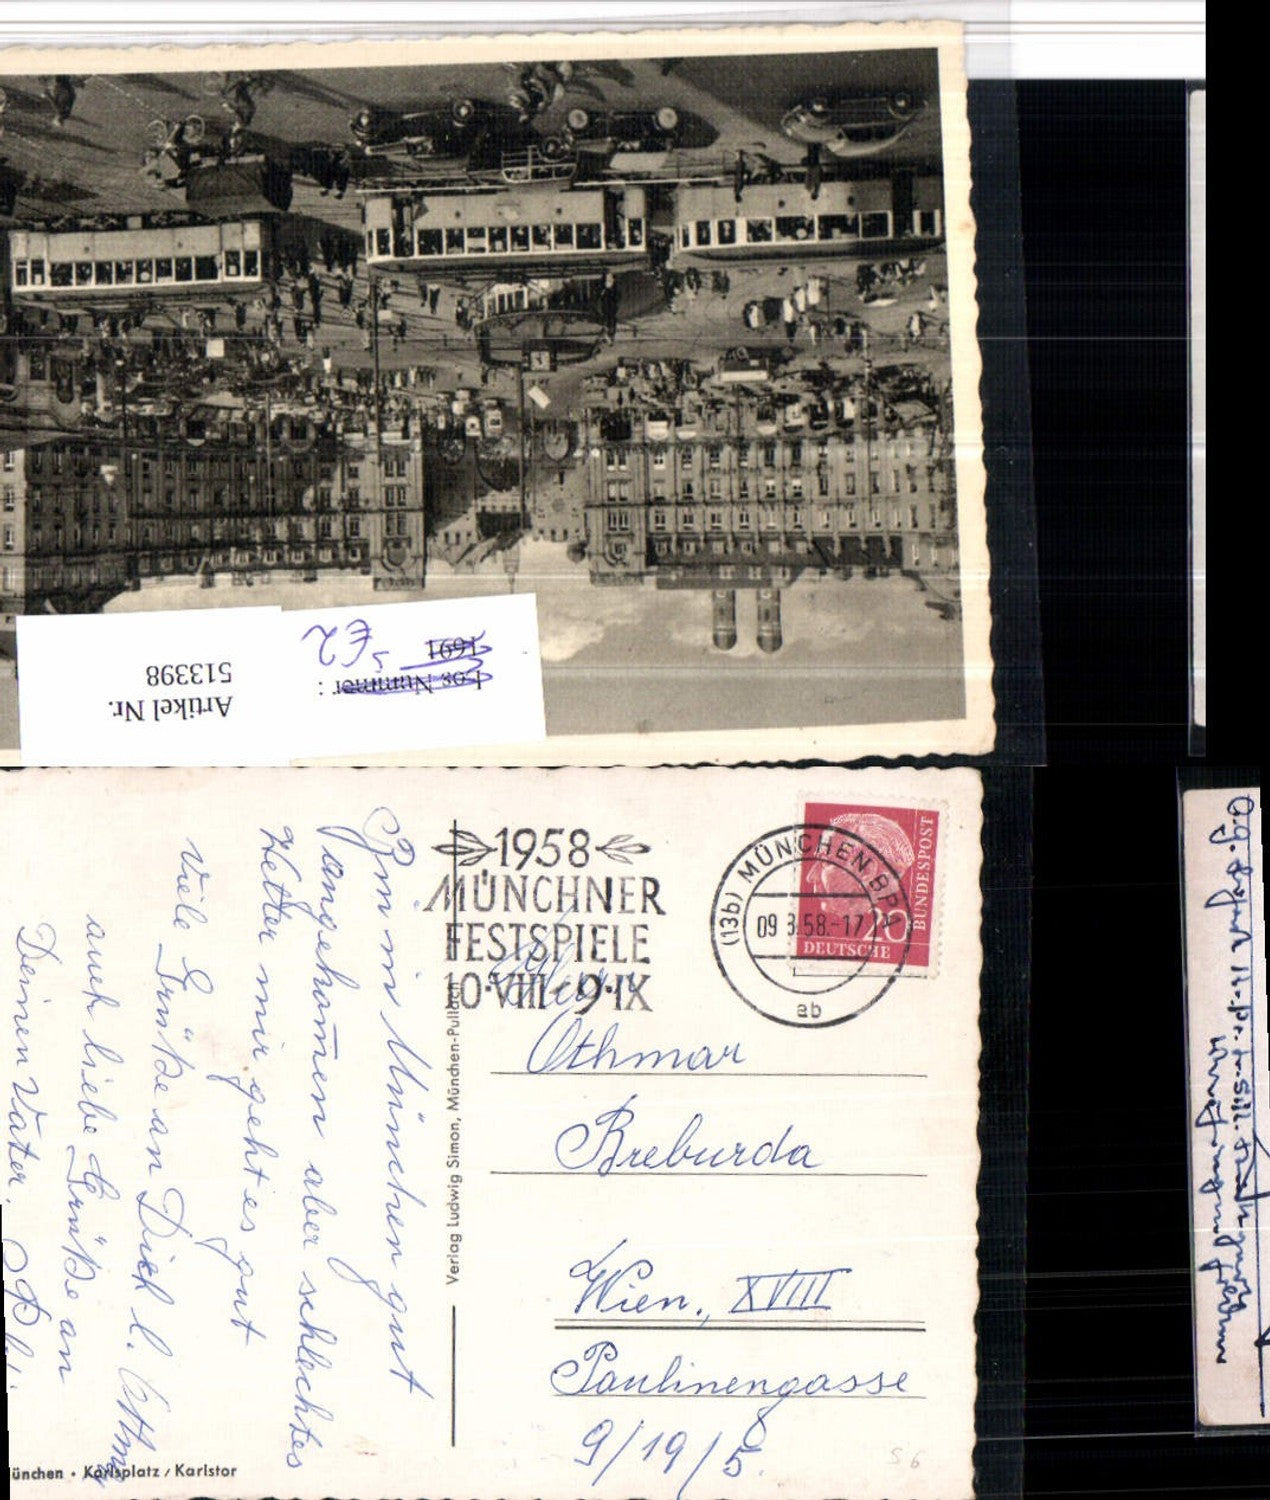 Artikel Nr.
513398
Los Nummer :
1691
€2
1958
MÜNCHNER
FESTSPIELE
10·VIII-9·IX
(13b) MÜNCHEN BP
09.8.58.-17
ab
20
DEUTSCHE
BUNDESPOST
Bin in München gut
angekommen aber schlechtes
Wetter mir geht es gut
Viele Grüße an Dich l.
auch liebe Grüße an
Deinen Vater.
Verlag Ludwig Simon, München-Pullach
Othmar
Breburda
Wien., XVIII
Paulinengasse
9/19/5.
56
ünchen · Karlsplatz / Karlstor